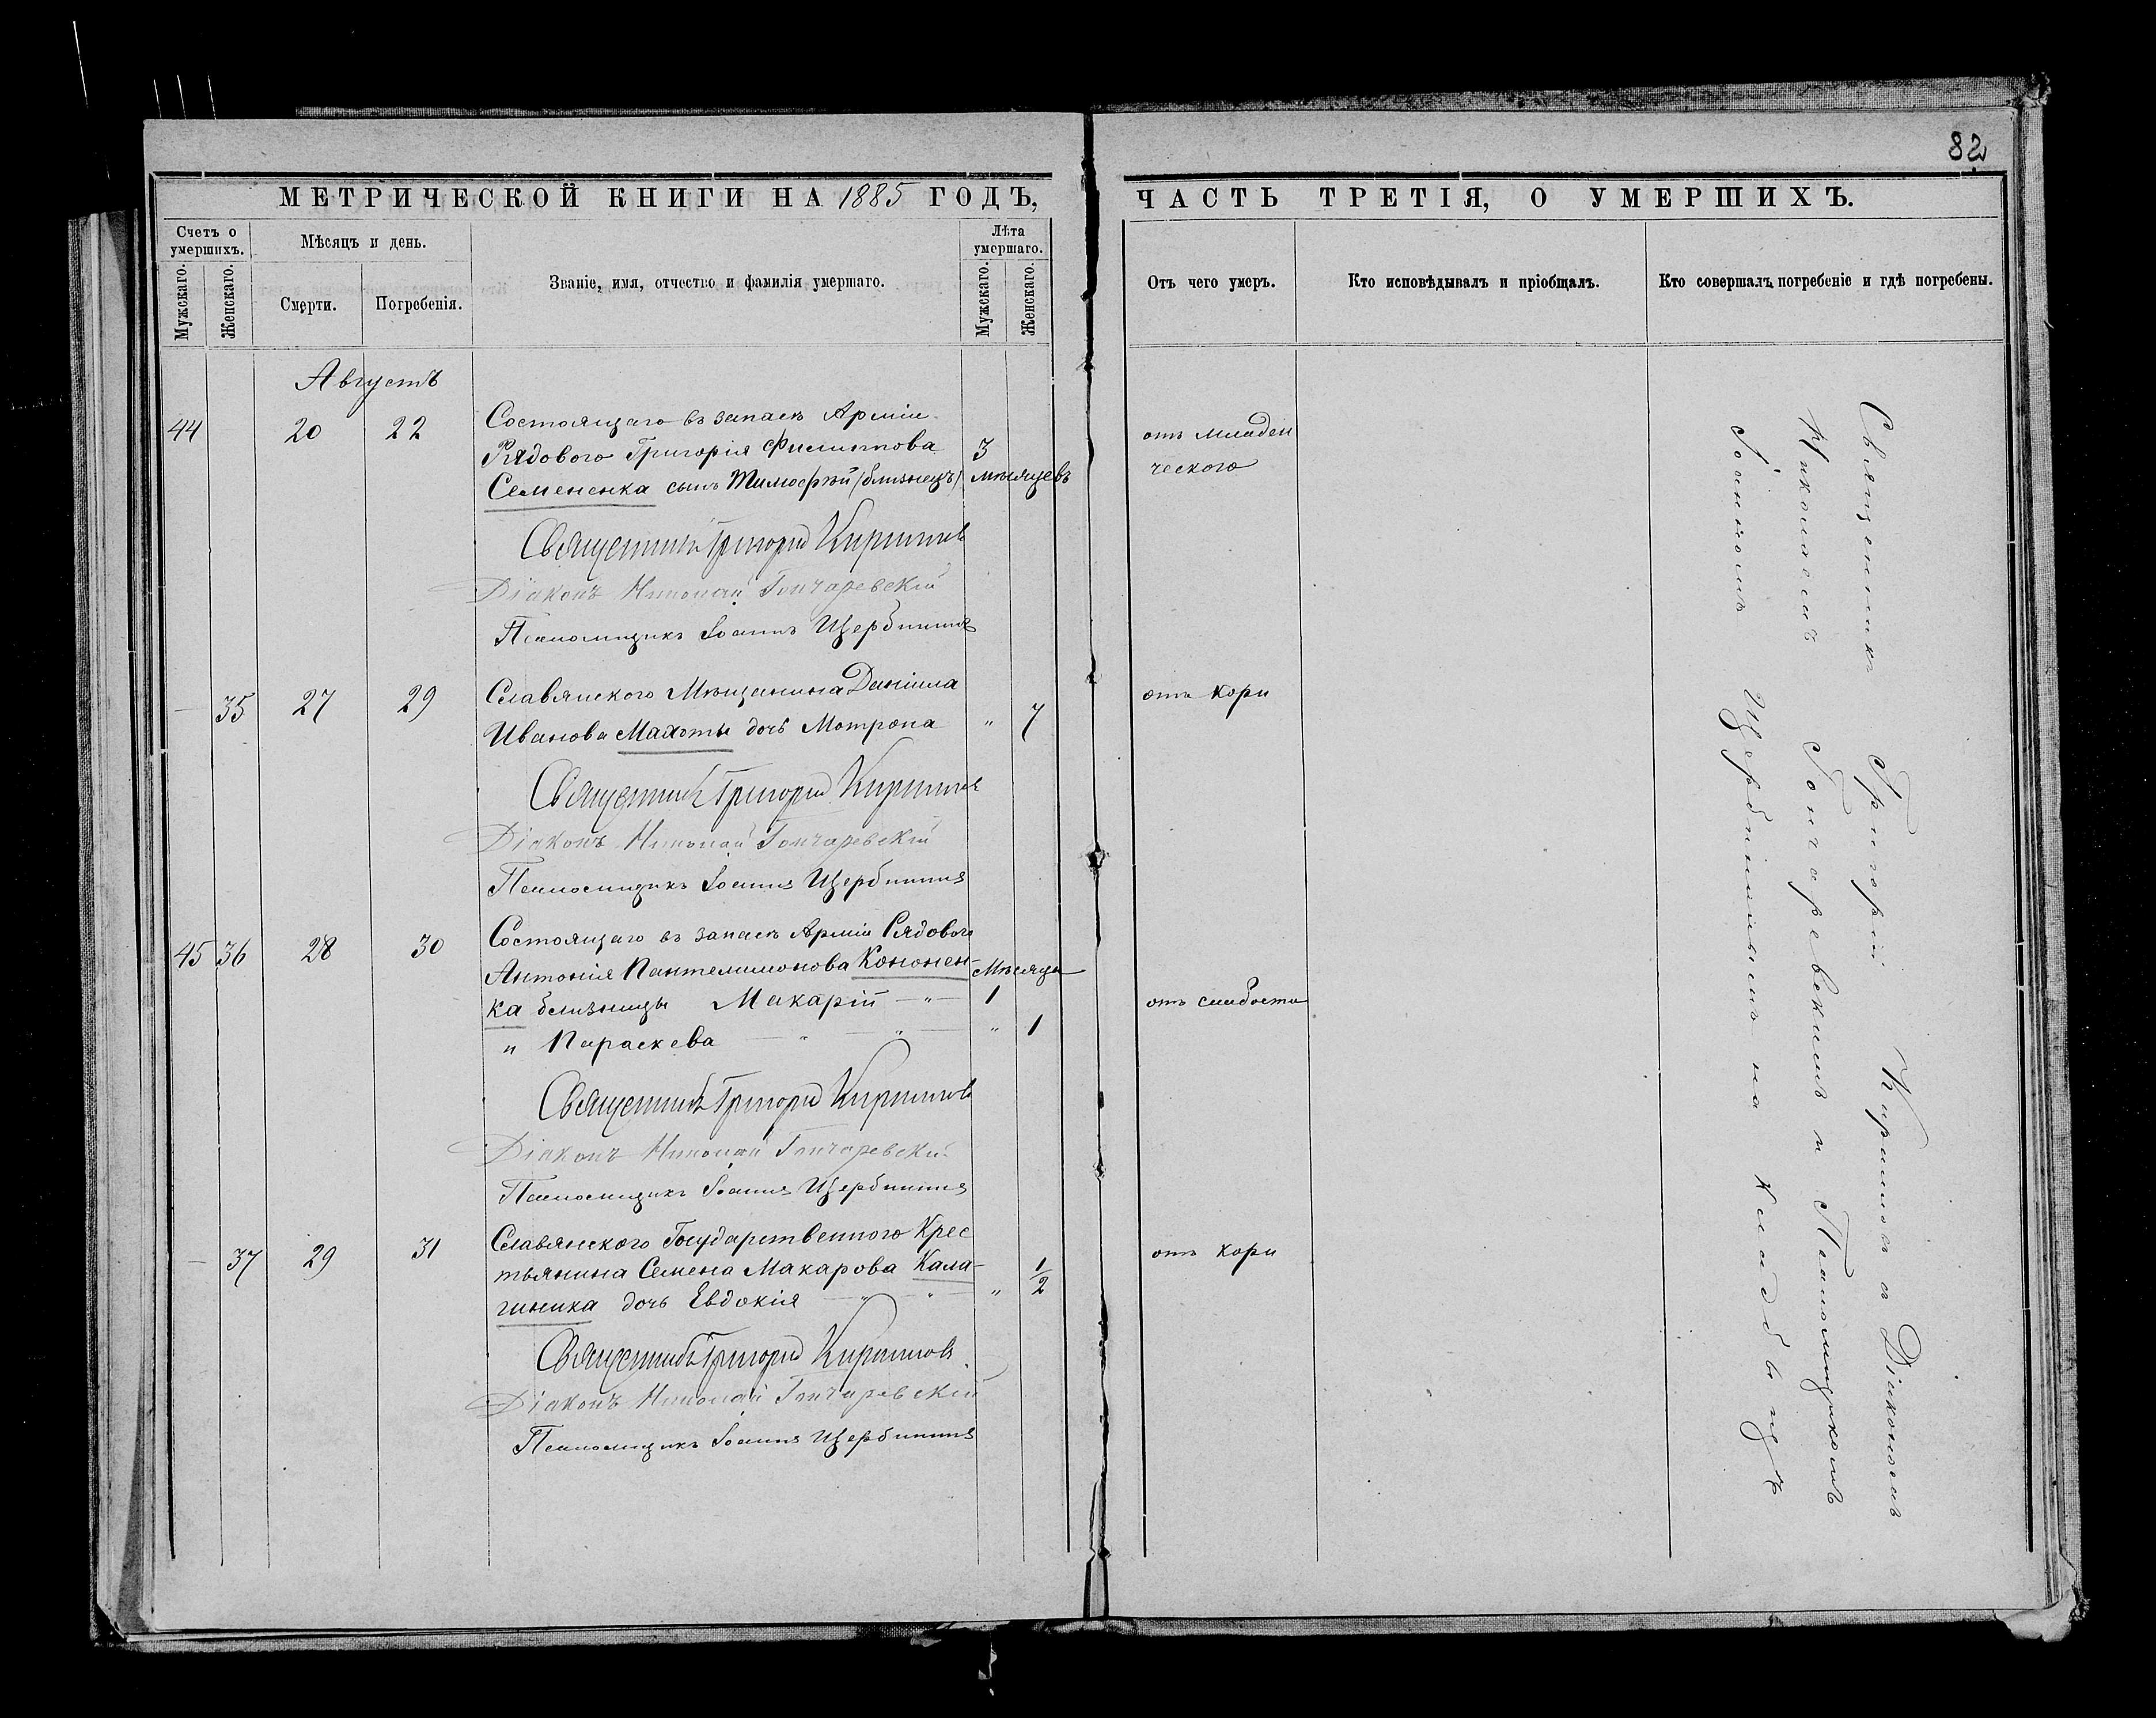 82
МЕТРИЧЕСКОЙ КНИГИ НА 1885 ГОДЪ,
Счетъ о умершихъ.
Мужскаго.
Женскаго.
Мѣсяцъ и день.
Смерти.
Погребенія.
Званіе, имя, отчество и фамилія умершаго.
Лѣта умершаго.
Мужскаго.
Женскаго.
ЧАСТЬ ТРЕТІЯ, О УМЕРШИХЪ.
Отъ чего умеръ.
Кто исповѣдывалъ и пріобщалъ.
Кто совершалъ погребеніе и гдѣ погребены.
Августъ
44 20 22 Состоящаго въ запасѣ Арміи
Рядового Григорія Филиппова 3 отъ младен
Семененка сынъ Тимофѣй (близнецъ) мѣсяцевъ ческого
Священникъ Григорій Кирилловъ
Діаконъ Николай Гончаревскій
Псаломщикъ Іоаннъ Щербининъ
— 35 27 29 Славянского Мѣщанина Даніила отъ кори
Иванова Махоты дочь Мотрона " 7
Священникъ Григорій Кирилловъ
Діаконъ Николай Гончаревскій
Псаломщикъ Іоаннъ Щербининъ
45 36 28 30 Состоящаго въ запасѣ Арміи Рядового
Антонія Пантелимонова Кононен- Мѣсяца
ка близнецы Макарій — " — 1 отъ слабости
" Параскева — " — " — " 1
Священникъ Григорій Кирилловъ
Діаконъ Николай Гончаревскій
Псаломщикъ Іоаннъ Щербининъ
— 37 29 31 Славянского Государственного Крес отъ кори
тьянина Семена Макарова Кала-
гиника дочь Евдокія — " — " — " 1/2
Священникъ Григорій Кирилловъ
Діаконъ Николай Гончаревскій
Псаломщикъ Іоаннъ Щербининъ
Священникъ Григорій Кирилловъ съ Діакономъ
Николаемъ Гончаревскимъ и Псаломщикомъ
Іоанномъ Щербининымъ на кладбищѣ